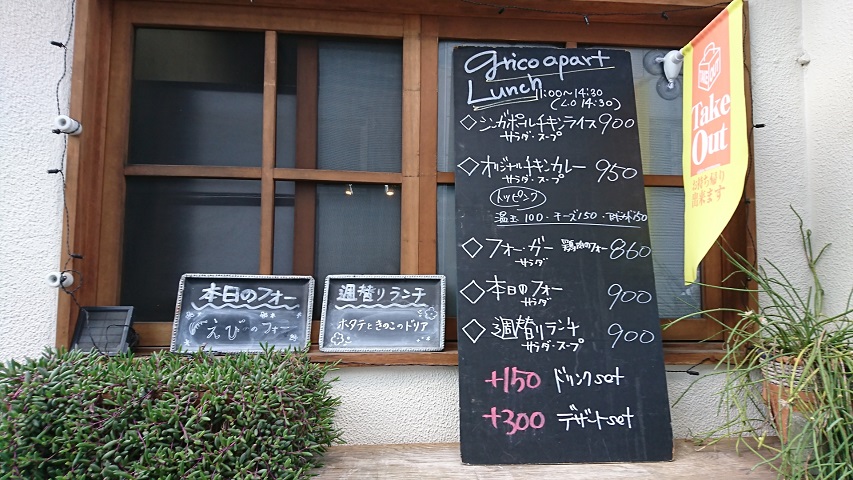 grico apart
Lunch
11:00～14:30
(L.O 14:30)
◇シンガポールチキンライス 900
サラダ・スープ
◇オリジナルチキンカレー 950
サラダ・スープ
トッピング
温玉 100・チーズ150・
◇フォー・ガー 鶏肉のフォー 860
サラダ
◇本日のフォー 900
サラダ
◇週替りランチ 900
サラダ・スープ
+150 ドリンクset
+300 デザートset
本日のフォー
えびのフォー
週替りランチ
ホタテときのこのドリア
TAKE OUT
Take
Out
お持ち帰り
出来ます